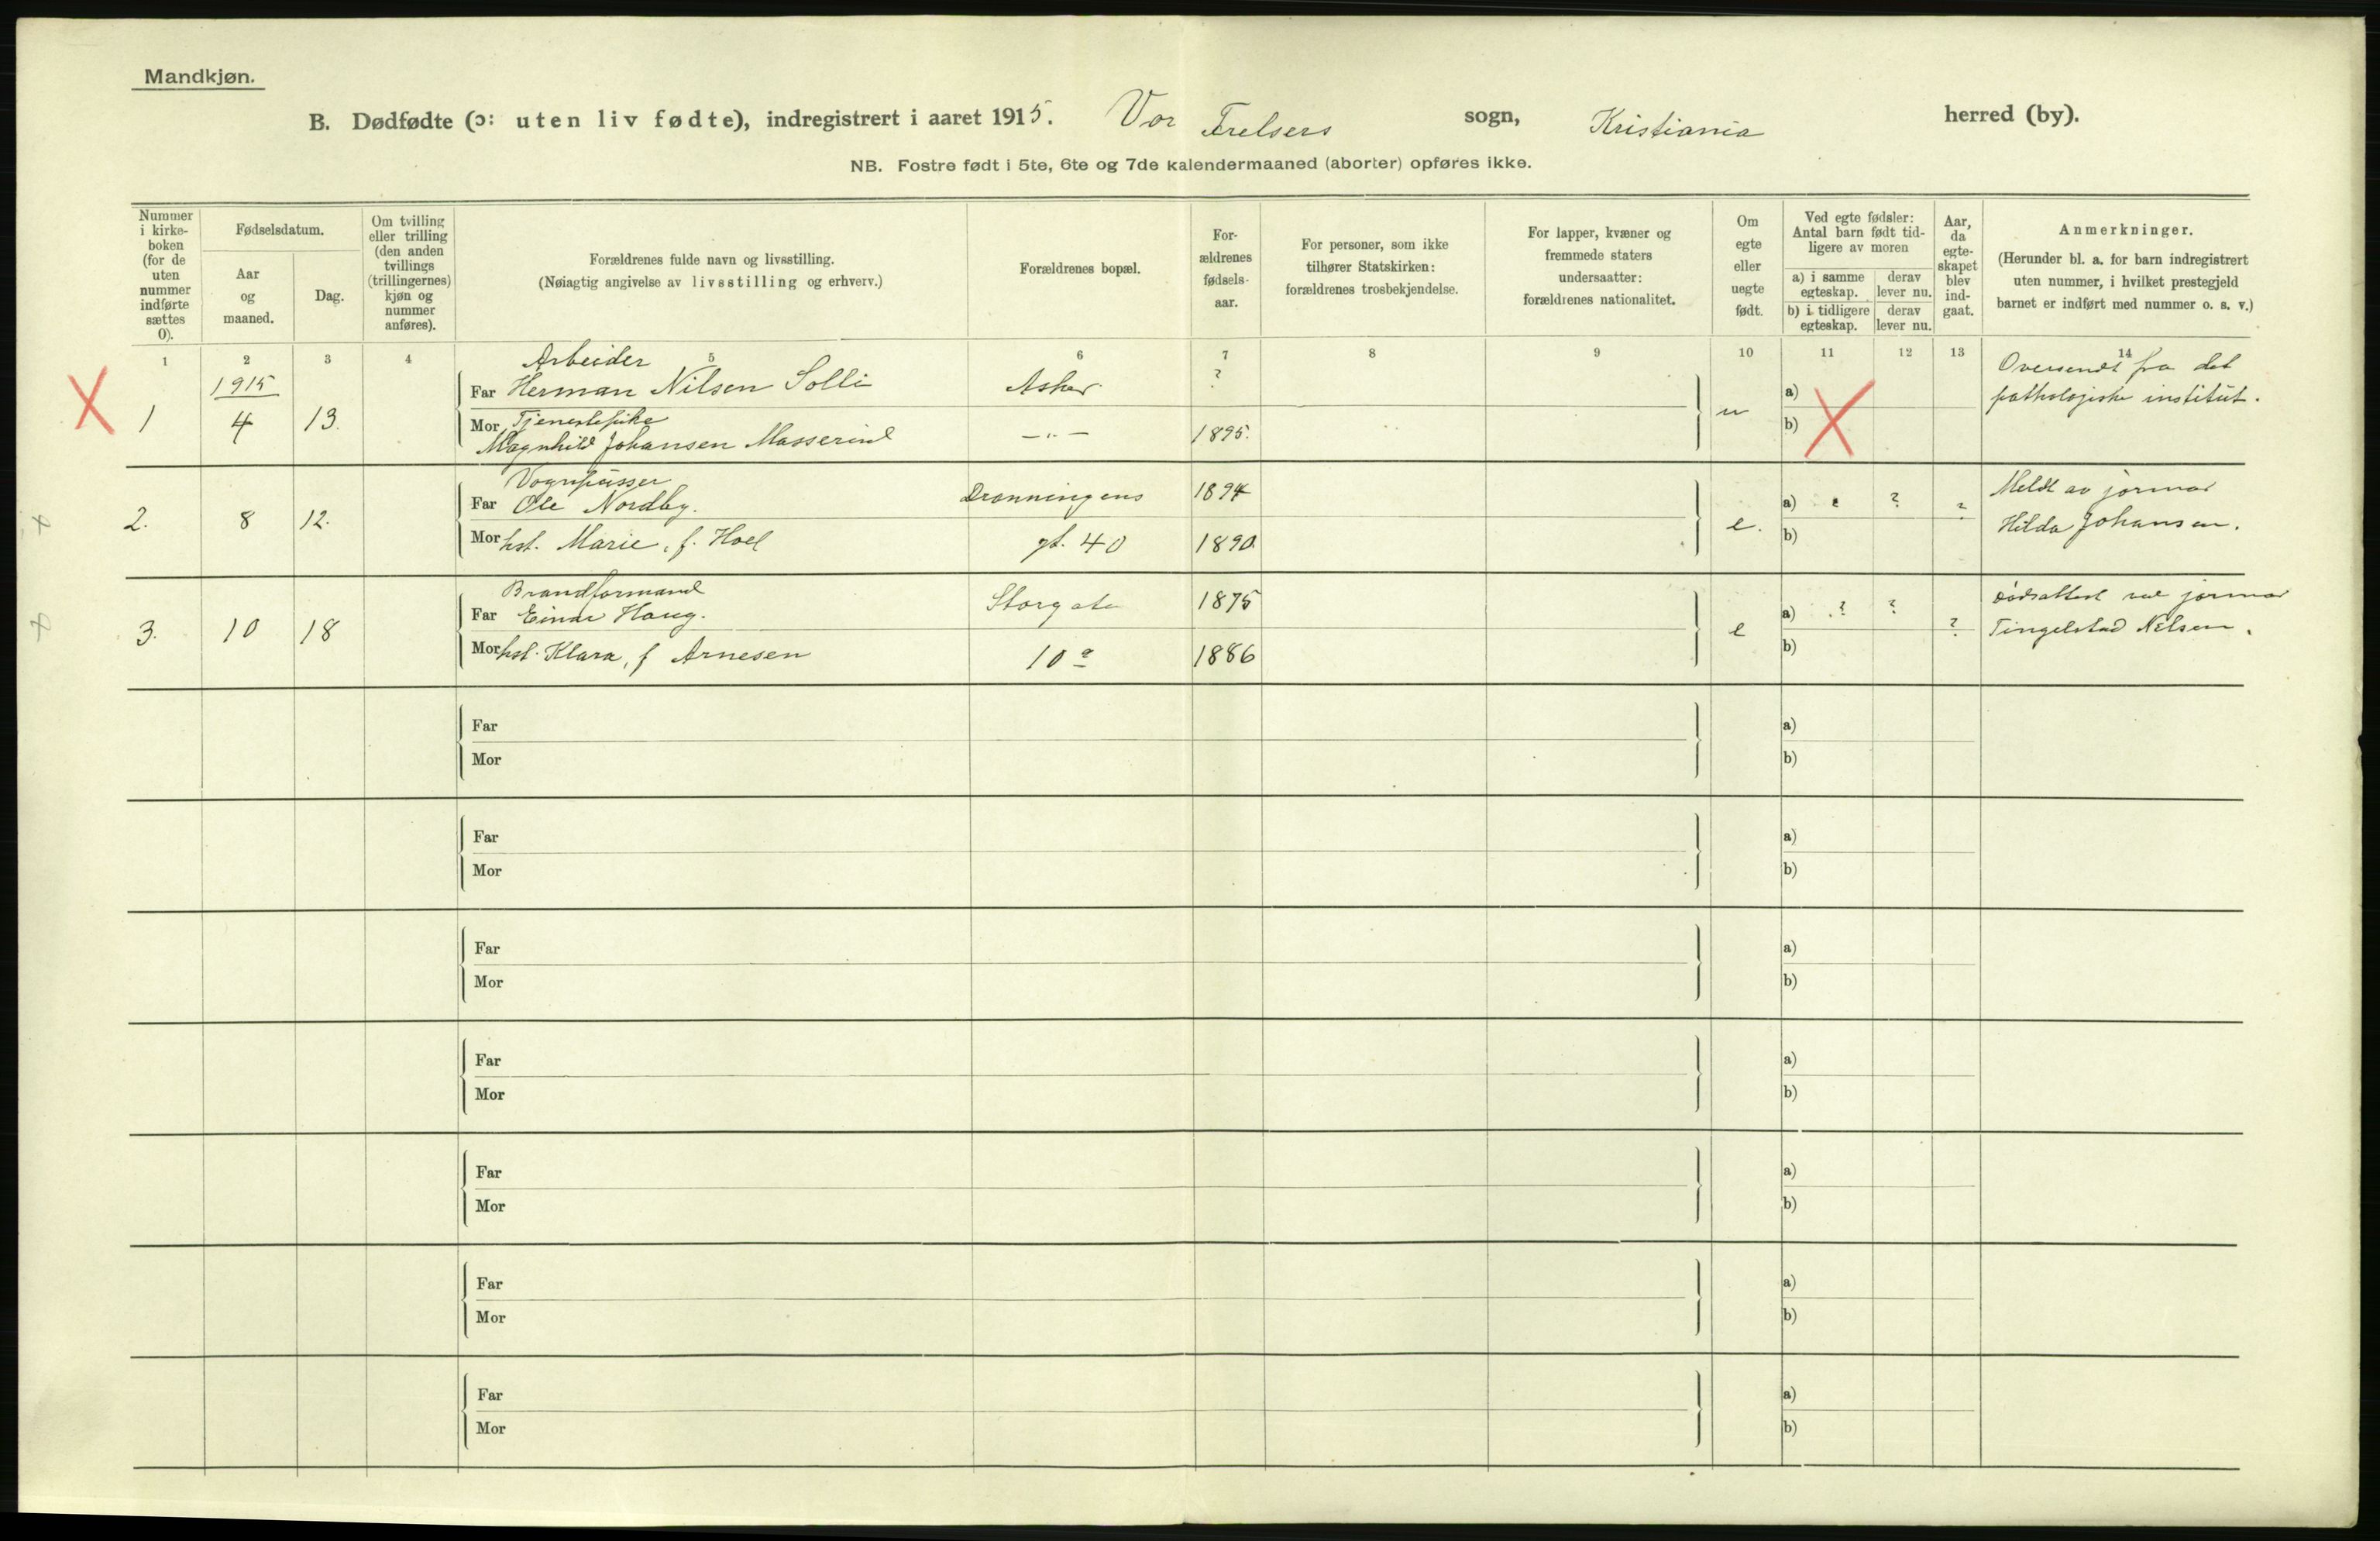 Mandkjøn.
B. Dødfødte (ɔ: uten liv fødte), indregistrert i aaret 1915. Vor Frelsers sogn, Kristiania herred (by).
NB. Fostre født i 5te, 6te og 7de kalendermaaned (aborter) opføres ikke.
Nummer
i kirke-
boken
(for de
uten
nummer
indførte
sættes
0).
Fødselsdatum.
Aar
og
maaned.
Dag.
Om tvilling
eller trilling
(den anden
tvillings
(trillingernes)
kjøn og
nummer
anføres).
Forældrenes fulde navn og livsstilling.
(Nøiagtig angivelse av livsstilling og erhverv.)
Forældrenes bopæl.
For-
ældrenes
fødsels-
aar.
For personer, som ikke
tilhører Statskirken:
forældrenes trosbekjendelse.
For lapper, kvæner og
fremmede staters
undersaatter:
forældrenes nationalitet.
Om
egte
eller
uegte
født.
Ved egte fødsler:
Antal barn født tid-
ligere av moren
a) i samme
egteskap.
derav
lever nu.
b) i tidligere
egteskap.
derav
lever nu.
Aar,
da
egte-
skapet
blev
ind-
gaat.
Anmerkninger.
(Herunder bl. a. for barn indregistrert
uten nummer, i hvilket prestegjeld
barnet er indført med nummer o. s. v.)
1 2 3 4 5 6 7 8 9 10 11 12 13 14
1915
1 4 13.
Arbeider
Far Herman Nilsen Solli Asker ?
Mor Tjenestepike
Magnhild Johansen Masserud —"— 1895.
u a)
b)
Oversendt fra det
pathologiske institut.
2. 8 12.
Vognpasser
Far Ole Nordby. Dronningens 1894
Mor hst. Marie, f. Hoel gt. 40 1890.
e. a) ? ? ?
b)
Meldt av jormor
Hilda Johansen.
3. 10 18
Brandformand
Far Einar Haug. Storgata 1875
Mor hst. Klara, f Arnesen 10 a 1886
e a) ? ? ?
b)
jormor
Tingelstad Nilsen.
Far a)
Mor b)
Far a)
Mor b)
Far a)
Mor b)
Far a)
Mor b)
Far a)
Mor b)
Far a)
Mor b)
Far a)
Mor b)